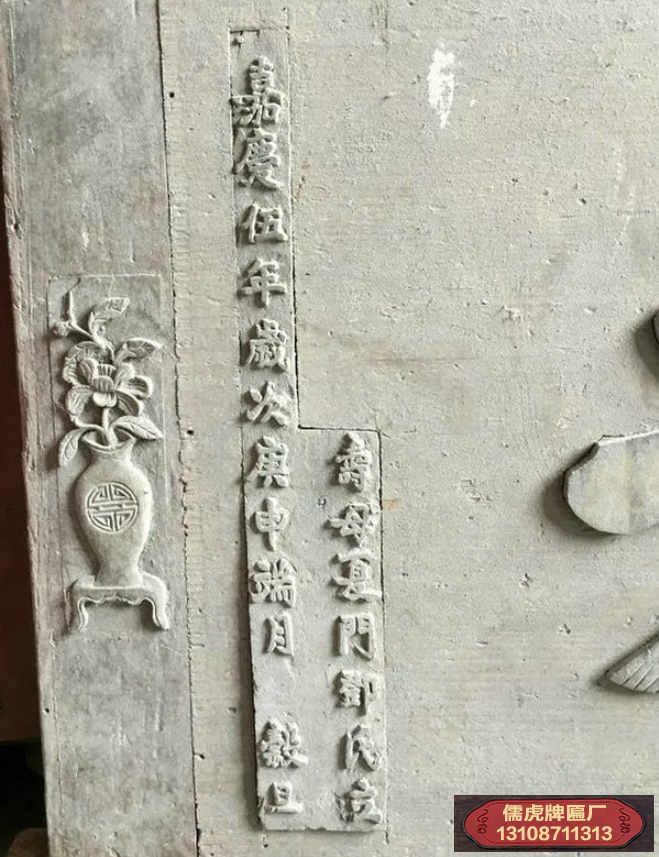 壽母夏門鄧氏立
嘉慶伍年歲次庚申端月 穀旦
儒虎牌匾厂
13108711313